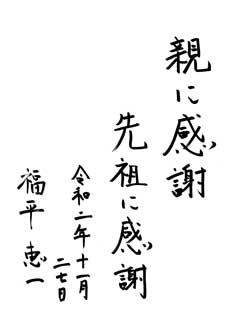 親に感謝
先祖に感謝
令和二年十一月
二七日
福平恵一